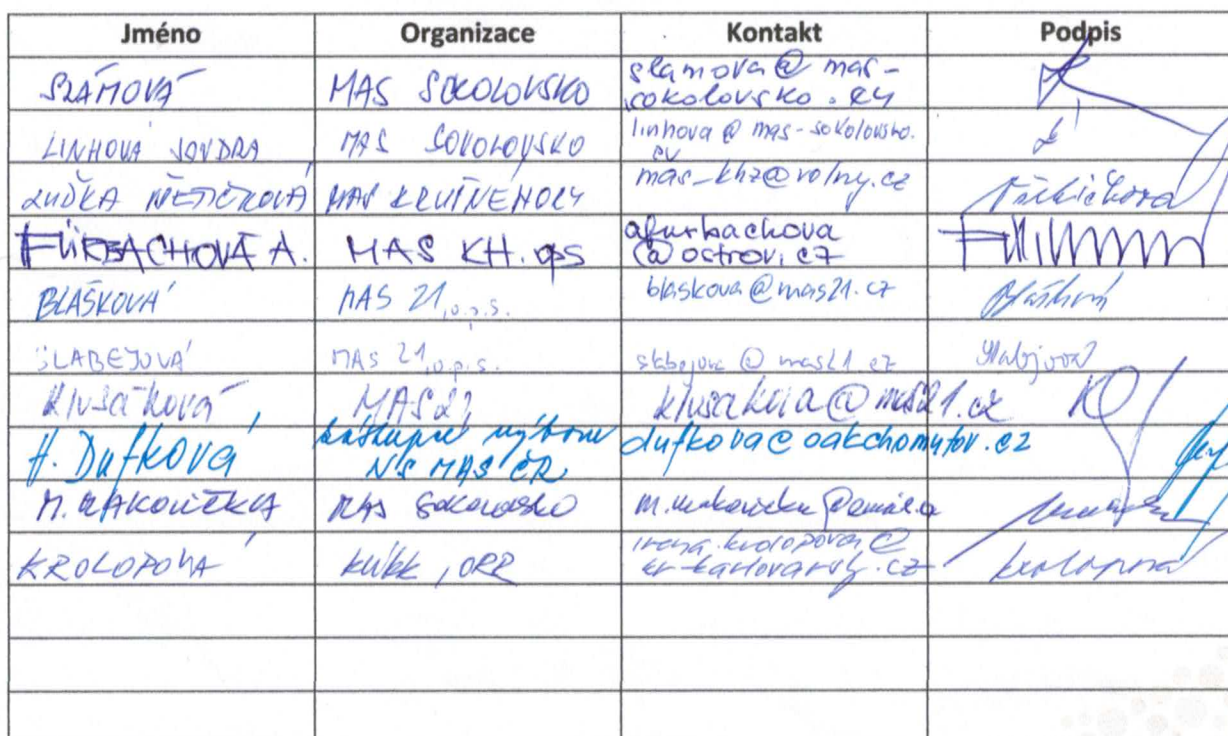 Jméno Organizace Kontakt Podpis
SLÁMOVÁ MAS SOKOLOVSKO slamova@mas-
sokolovsko.eu
LINHOVÁ MAS SOKOLOVSKO linhova@mas-sokolovsko.
eu
MAS KRUŠNÉ HORY mas_khz@volny.cz
FÜRBACHOVÁ A. MAS KH. ops afurbachova
@ostrov.cz
BLAŠKOVÁ MAS 21, o.p.s. blaskova@mas21.cz
SLABEJOVÁ MAS 21, o.p.s. slabejova@mas21.cz
Klusáková MAS21 klusakova@mas21.cz
H. Dufková výboru dufkova@oakchomutov.cz
NS MAS ČR
M. MAKOVIČKA MAS Sokolovsko
KROLOPOVÁ KÚKK, ORR irena.krolopova@
kr-karlovarsky.cz krolopová